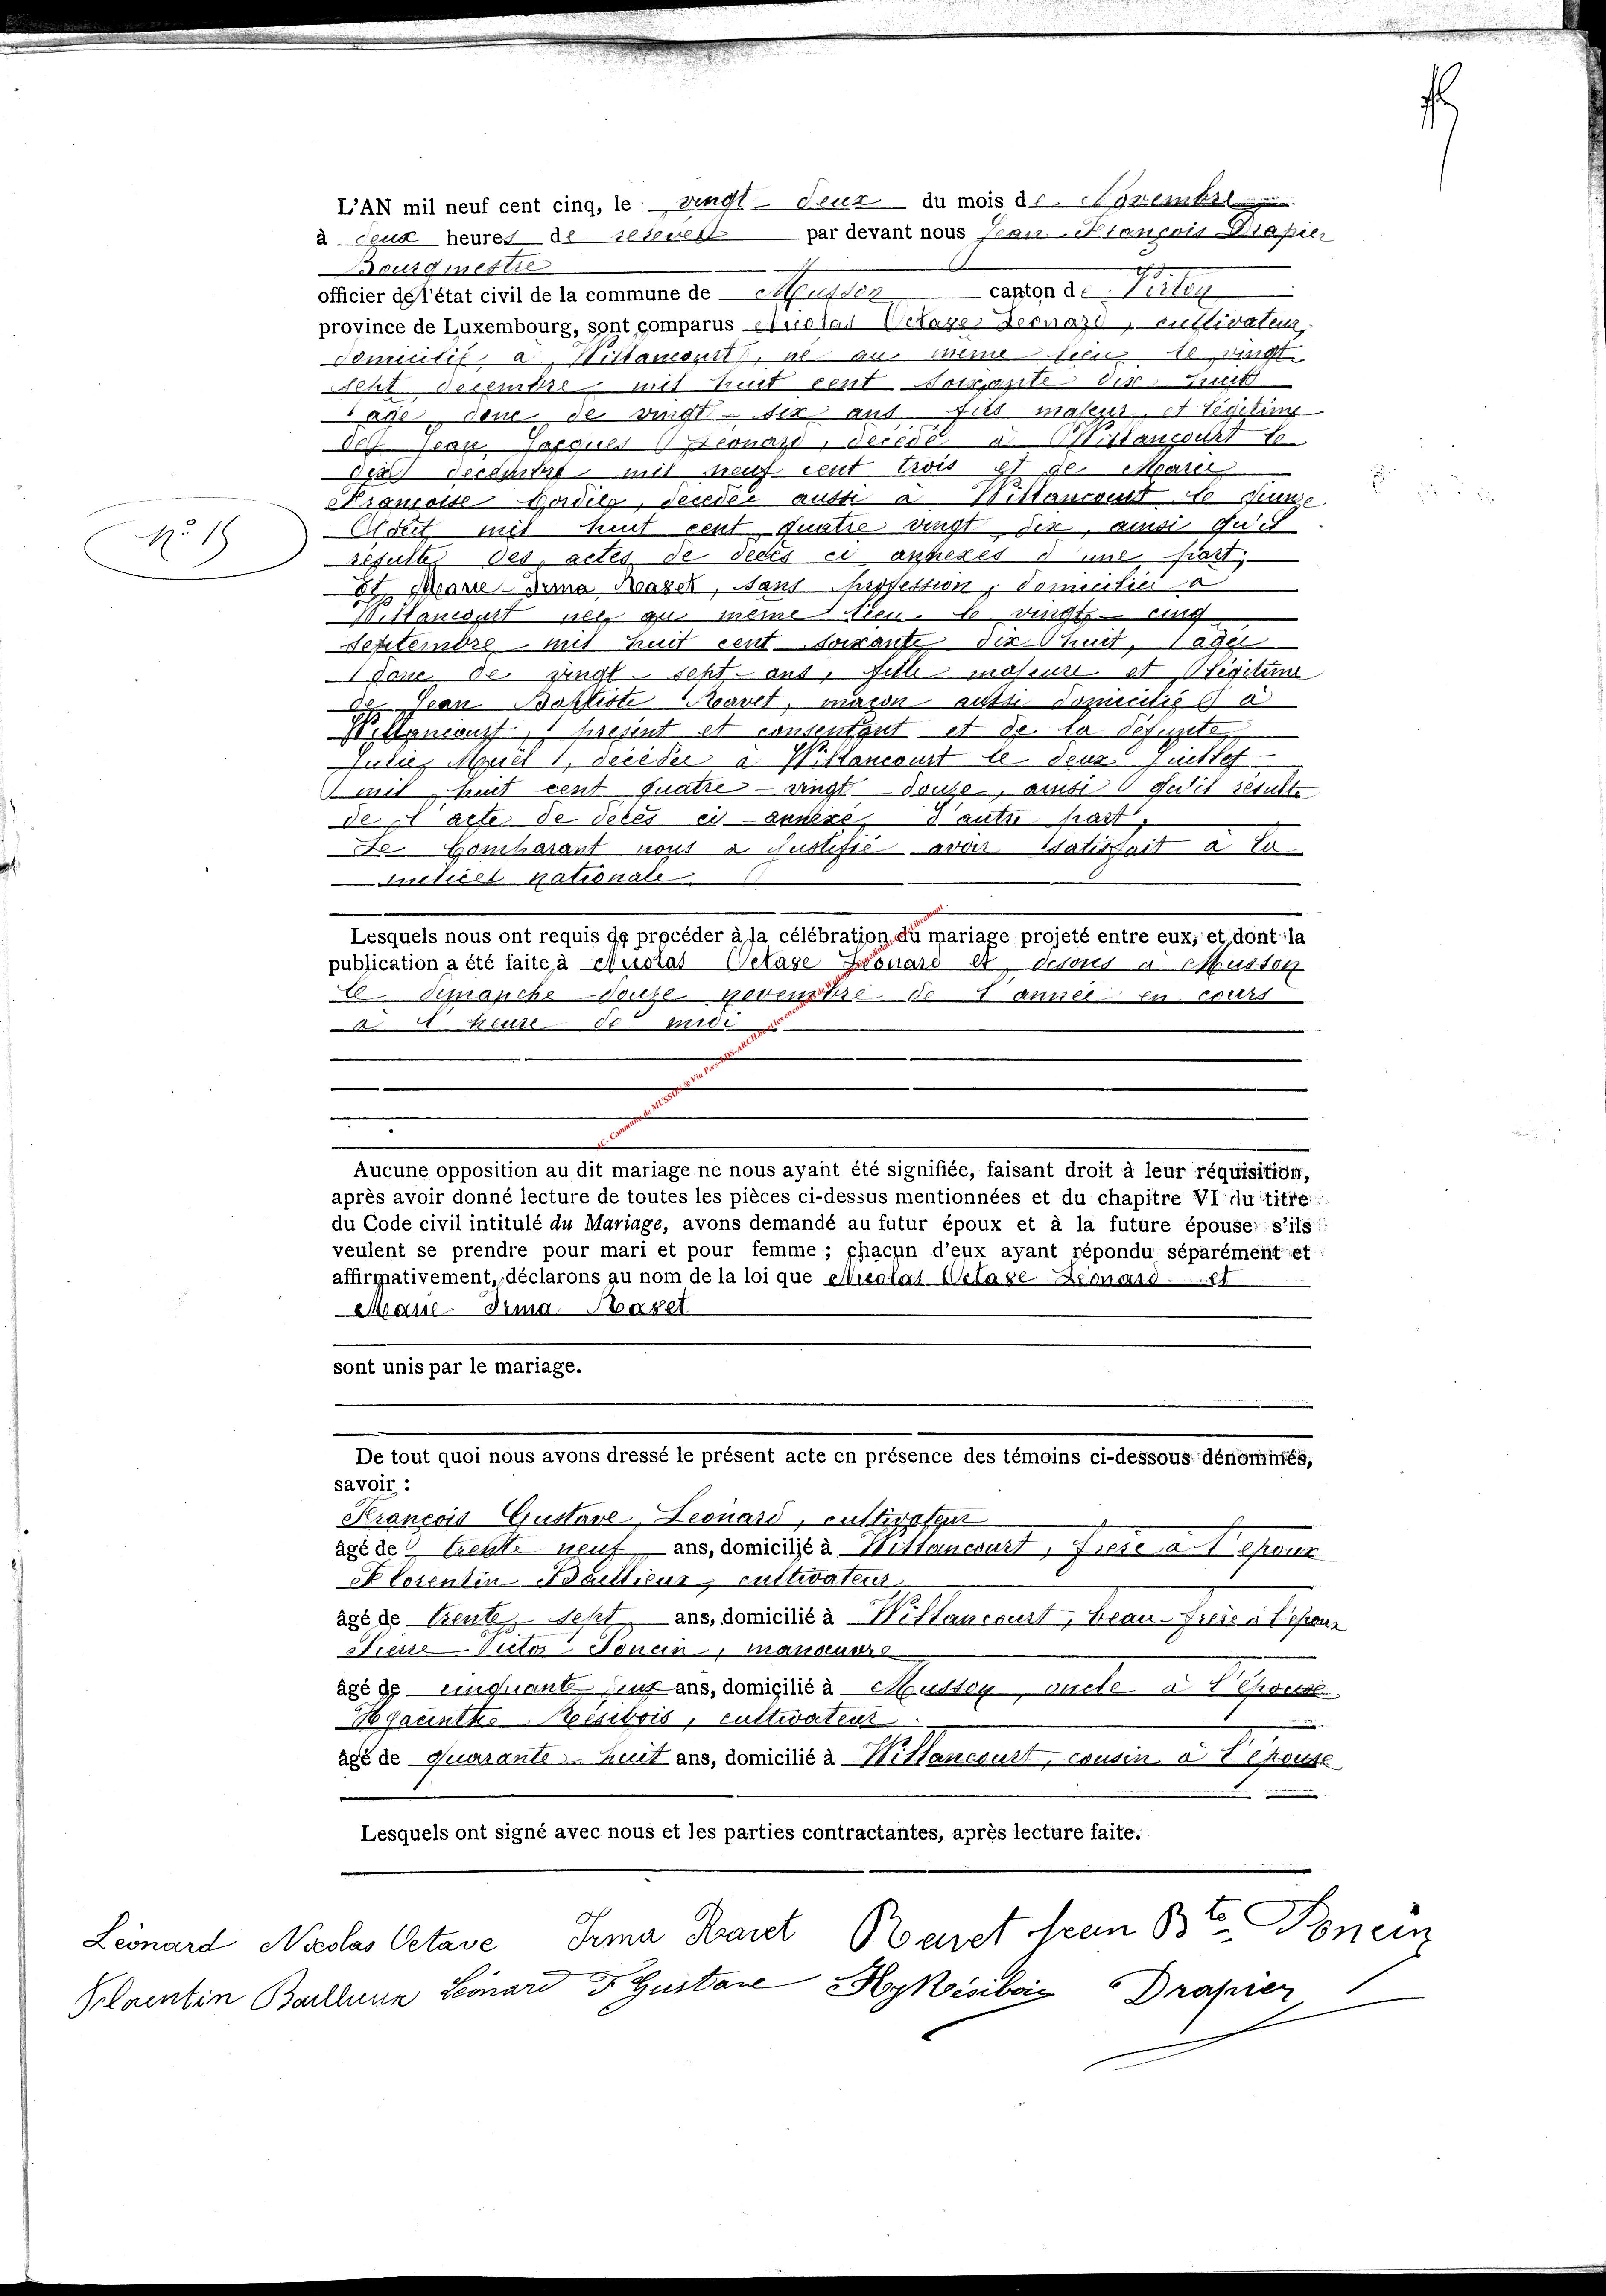 L'AN mil neuf cent cinq, le vingt-deux du mois de Novembre
à deux heures de relevée par devant nous Jean François Drapier
Bourgmestre
officier de l'état civil de la commune de Musson canton de Virton
province de Luxembourg, sont comparus Nicolas Octave Léonard, cultivateur,
domicilié à Willancourt, né au même lieu le vingt
sept décembre mil huit cent soixante dix huit
agé donc de vingt-six ans fils majeur et légitime
de Jean Jacques Léonard, décédé à Willancourt le
dix décembre mil neuf cent trois et de Marie
Françoise décédée aussi à Willancourt le quinze
Aout mil huit cent quatre vingt dix, ainsi qu'il
résulte des actes de décès ci annexés d'une part;
Et Marie-Irma Ravet, sans profession, domiciliée à
Willancourt née au même lieu le vingt-cinq
septembre mil huit cent soixante dix huit, agée
donc de vingt-sept ans, fille majeure et légitime
de Jean Baptiste Ravet, maçon aussi domicilié à
Willancourt, présent et consentant et de la défunte
Julie décédée à Willancourt le deux Juillet
mil huit cent quatre-vingt-douze, ainsi qu'il résulte
de l'acte de décès ci-annexé d'autre part,
Le Comparant nous a justifié avoir satisfait à la
milice nationale
Lesquels nous ont requis de procéder à la célébration du mariage projeté entre eux, et dont la
publication a été faite à Nicolas Octave Léonard et disons à Musson
le dimanche douze novembre de l'année en cours
à l'heure de midi
AC- Commune de MUSSON ® Via
N° 15
Aucune opposition au dit mariage ne nous ayant été signifiée, faisant droit à leur réquisition,
après avoir donné lecture de toutes les pièces ci-dessus mentionnées et du chapitre VI du titre
du Code civil intitulé du Mariage, avons demandé au futur époux et à la future épouse s'ils
veulent se prendre pour mari et pour femme; chacun d'eux ayant répondu séparément et
affirmativement, déclarons au nom de la loi que Nicolas Octave Léonard et
Marie Irma Ravet
sont unis par le mariage.
De tout quoi nous avons dressé le présent acte en présence des témoins ci-dessous dénommés,
savoir :
François Gustave Léonard, cultivateur
âgé de trente neuf ans, domicilié à Willancourt, frère à l'époux
Florentin Baillieux, cultivateur
âgé de trente-sept ans, domicilié à Willancourt, beau-frère à l'époux
Pierre Victor Ponein, manœuvre
âgé de cinquante cinq ans, domicilié à Musson, oncle à l'épouse
Hyacinthe Résibois, cultivateur
âgé de quarante huit ans, domicilié à Willancourt, cousin à l'épouse
Lesquels ont signé avec nous et les parties contractantes, après lecture faite.
Léonard Nicolas Octave Irma Ravet Ravet Jean Bte Ponein
Florentin Baillieux Léonard F Gustave Hy Résibois Drapier